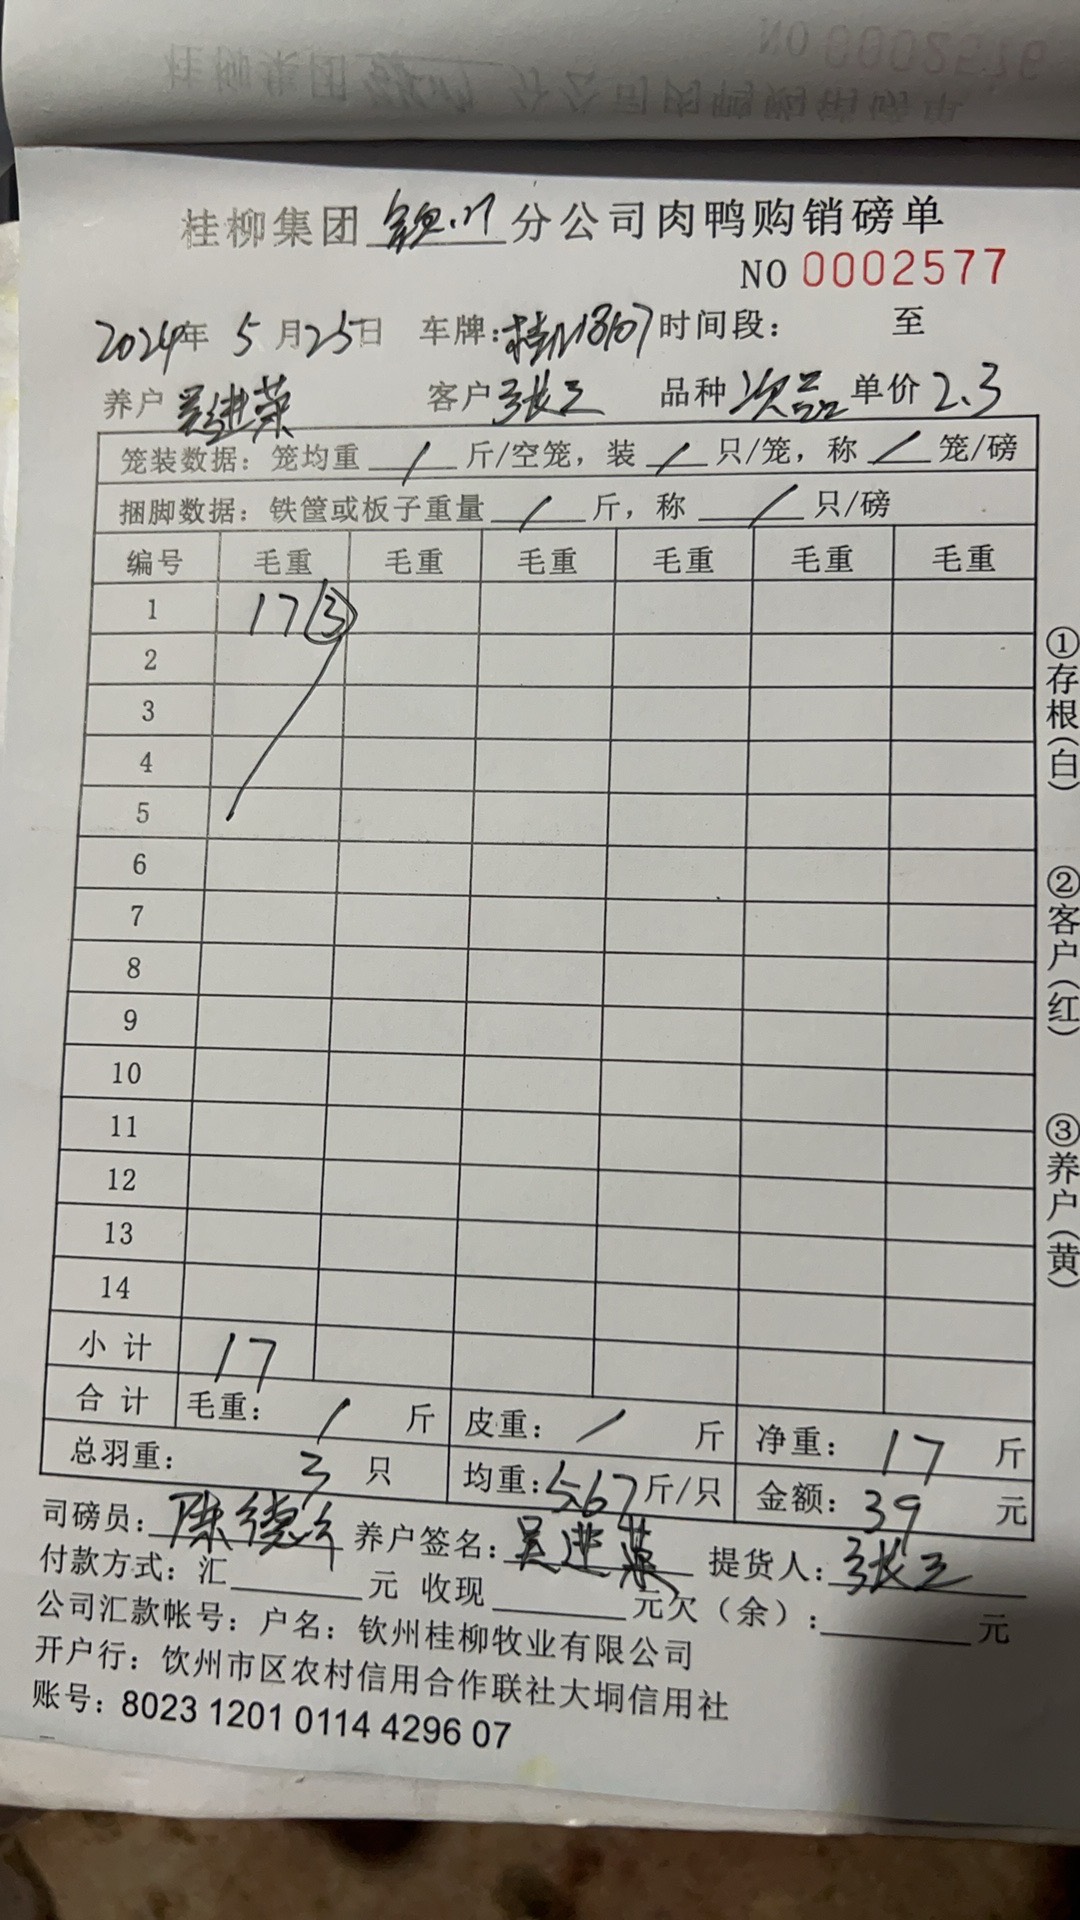 桂柳集团 钦州 分公司肉鸭购销磅单
NO 0002577
2024年 5月25日 车牌: 时间段: 至
养户 吴进荣 客户 张三 品种 次品 单价 2.3
笼装数据: 笼均重 / 斤/空笼, 装 / 只/笼, 称 / 笼/磅
捆脚数据: 铁筐或板子重量 / 斤, 称 / 只/磅
编号 毛重 毛重 毛重 毛重 毛重 毛重
1 17 ③
2
3
4
5
6
7
8
9
10
11
12
13
14
小计 17
合计 毛重: / 斤 皮重: / 斤 净重: 17 斤
总羽重: 3 只 均重: 5.67 斤/只 金额: 39 元
司磅员: 陈德 养户签名: 吴进荣 提货人: 张三
付款方式: 汇 元 收现 元欠(余): 元
公司汇款帐号: 户名: 钦州桂柳牧业有限公司
开户行: 饮州市区农村信用合作联社大垌信用社
账号: 8023 1201 0114 4296 07
①存根(白)
②客户(红)
③养户(黄)